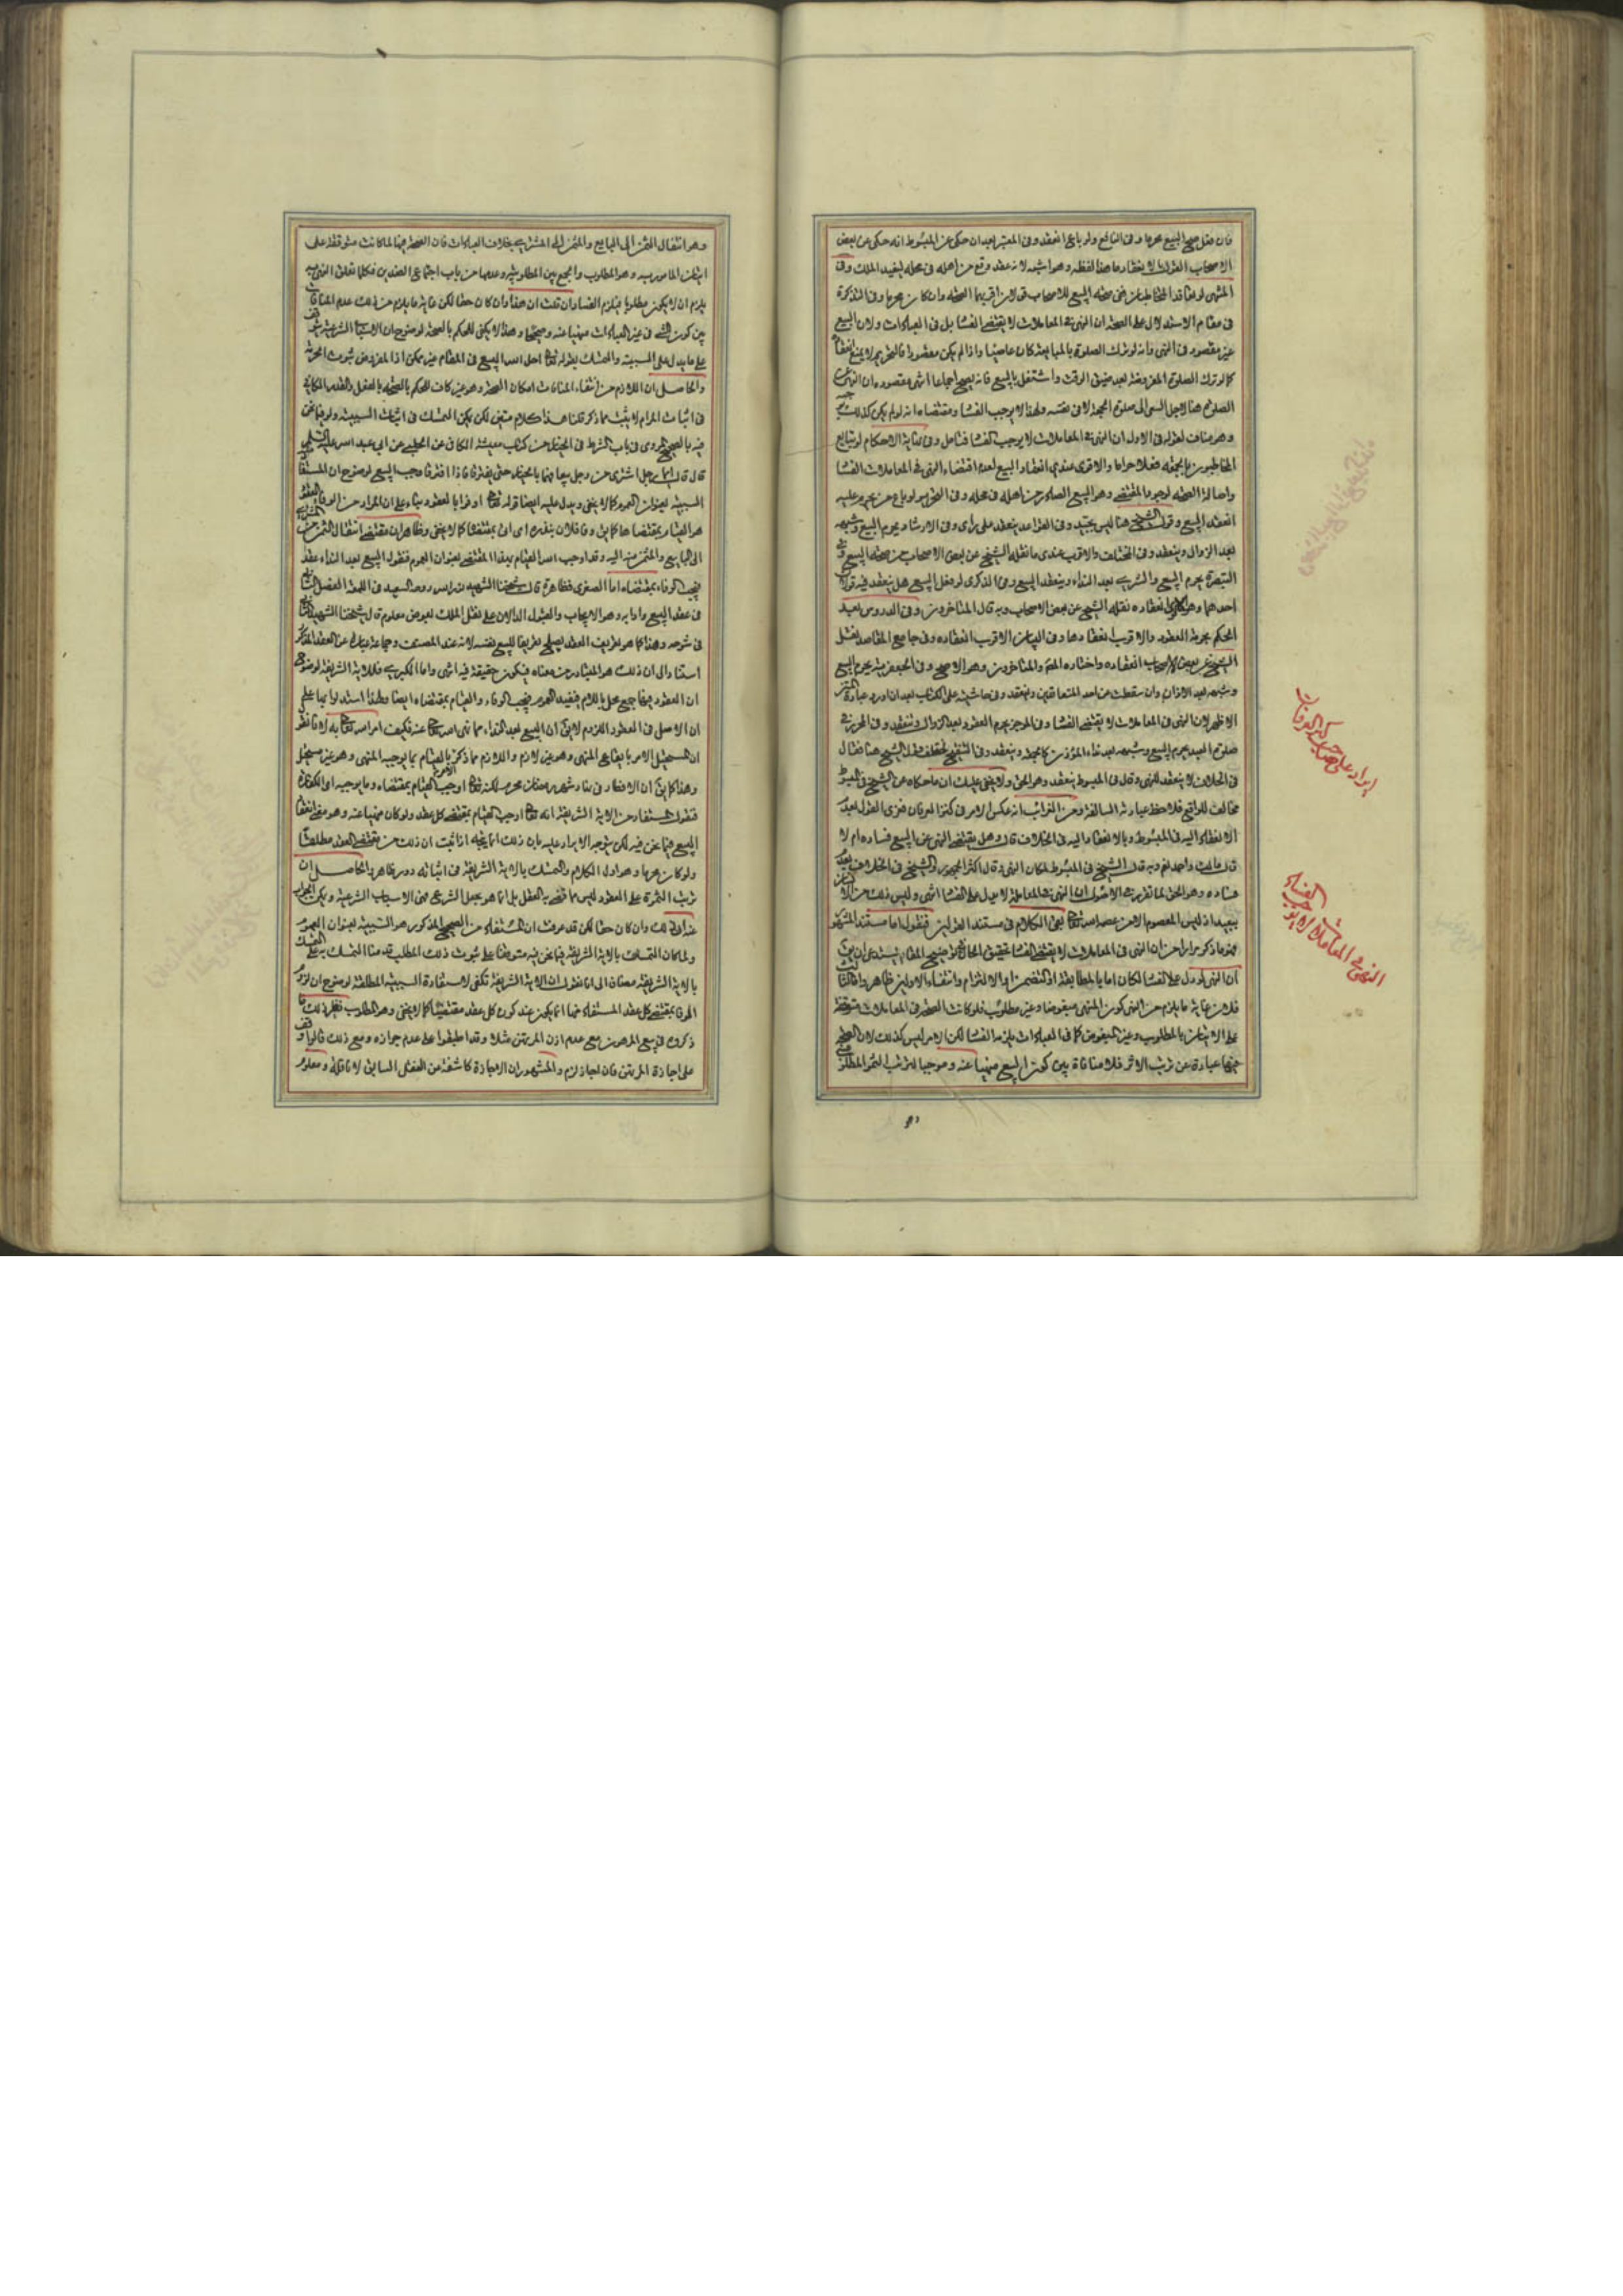 فان فعل صح البيع محرما وفى النافع ولو باع انعقد وفى المعتبر بعد ان حكى عن المبسوط انه حكى عن بعض
الاصحاب القول بانه لا ينعقد ما هذا لفظه وهو اشبه لانه عقد وقع من اهله فى محله ليفيد الملك وفى
المنتهى لو تعاقد المخاطبان ففى صحة البيع للاصحاب قولان اقربهما الصحة وان كان محرما وفى التذكرة
فى مقام الاستدلال على الصحة ان النهى فى المعاملات لا يقتضى الفساد بل فى العبادات ولان البيع
غير مقصود فى النهى وانه لو ترك الصلوة بالمبايعة كان عاصيا واذا لم يكن مقصودا فالتحريم لا يمنع انعقاده
كما لو ترك الصلوة المفروضة بعد ضيق الوقت واشتغل بالبيع فانه يصح اجماعا انتهى مقصوده ان النهى عن
الصلوة هنا لاجل السعى الى صلوة الجمعة لا فى نفسه ولهذا لا يوجب الفساد ومقتضاه انه لو لم يكن كذلك
وهو مناف لقوله فى الاول ان النهى فى المعاملات لا يوجب الفساد فتامل وفى نهاية الاحكام لو تبايع
المخاطبون بالجمعة فعلا حراما والاقوى عندى انعقاد البيع لعدم اقتضاء النهى فى المعاملات الفساد
واصالة الصحة لوجود المقتضى وهو البيع الصادر من اهله فى محله وفى التحرير لو باع من يحرم عليه
انعقد البيع وقول الشيخ هنا ليس بجيد وفى القواعد ينعقد على راى وفى الارشاد ويحرم البيع وشبهه
بعد الزوال وينعقد وفى المختلف والاقرب عندى ما نقله الشيخ عن بعض الاصحاب من صحة البيع وفى
التبصرة يحرم البيع والشرى بعد النداء وينعقد البيع وفى الذكرى لو فعل البيع هل ينعقد فيه قولان
احدهما وهو الاولى انعقاده نقله الشيخ عن بعض الاصحاب وبه قال المتاخرون وفى الدروس بعد
الحكم بحرمة العقود والاقرب انعقادها وفى البيان الاقرب انعقاده وفى جامع المقاصد نقل
الشيخ عن بعض الاصحاب انعقاده واختاره المصنف والمتاخرون وهو الاصح وفى الجعفرية يحرم البيع
وشبهه بعد الاذان وان سقطت عن احد المتعاقدين وينعقد وفى حاشيته على الكتاب بعد ان اورد عبارة المتن
الاظهر لان النهى فى المعاملات لا يقتضى الفساد وفى الموجز يحرم العقود بعد الزوال وتنعقد وفى المحرر فى
صلوة العيد يحرم البيع وشبهه بعد نداء المؤذن كالجمعة وينعقد وفى التنقيح اختلف قول الشيخ هنا فقال
فى الخلاف لا ينعقد للنهى وقال فى المبسوط ينعقد وهو الحق ولا يخفى عليك ان ما حكاه عن الشيخ فى المبسوط
مخالف للواقع فلاحظ عبارته السالفة ومن الغرائب انه عكس الامر فى كنز العرفان فعزى القول بعدم
الانعقاد اليه فى المبسوط وبالانعقاد اليه فى الخلاف قال وهل يقتضى النهى عن البيع فساده ام لا
قال مالك واحمد نعم وبه قال الشيخ فى المبسوط لمكان النهى وقال اكثر الجمهور والشيخ فى الخلاف بعدم
فساده وهو الحق لما تقرر فى الاصول ان النهى فى المعاملة لا يدل على الفساد انتهى وليس ذلك من
ببعيد اذ ليس المعصوم الا من عصمه الله تعالى بقى الكلام فى مستند القولين فنقول اما مستند المشهور
فهو ما ذكر مرارا من ان النهى فى المعاملات لا يقتضى الفساد تحقيق الحال لتوضيح المقال يستدعى ان يق
ان النهى لو دل على الفساد لكان اما بالمطابقة او التضمن او الالتزام وانتفاء الاولين ظاهر واما الثالث
فلان غاية ما يلزم من النهى كون المنهى مبغوضا وغير مطلوب فلو كانت الصحة فى المعاملات متوقفة
على الاتيان بالمطلوب وغير المبغوض كما فى العبادات يلزمه الفساد لكن الامر ليس كذلك لان الصحة
فيها عبارة عن ترتب الاثر فلا منافاة بين كون البيع منهيا عنه وموجبا لترتب الثمر المطلوب
ايراد على صاحب كنز العرفان
النهى فى المعاملات لا يوجب الفساد
وهو انتقال الثمن الى البايع والمثمن الى المشترى بخلاف العبادات فان الصحة فيها لما كانت متوقفة على
اتيان المامور به وهو المطلوب والجمع بين المطلوبية وعدمها من باب اجتماع الضدين فكلما تعلق النهى به
يلزم ان لا يكون مطلوبا فيلزم الفساد وان قلت ان هذا وان كان حقا لكن غاية ما يلزم من ذلك عدم المنافات
بين كون الشئ فى غير العبادات منهيا عنه وصحيحا وهذا لا يكفى للحكم بالصحة لوضوح ان الاسباب الشرعية
على ما يدل على السببية والتمسك بقوله تعالى احل الله البيع فى المقام غير ممكن اذ المفروض ثبوت الحرمة
والحاصل ان اللازم من انتفاء المنافات امكان الصحة وهو غير كاف للحكم بالصحة بالفعل والقدر المكافى
فى اثبات المرام لا يثبت مما ذكر قلنا هذا كلام متين لكن يكون التمسك فى اثبات السببية ولو فيما نحن
فيه بالصحيح المروى فى باب الشرط فى الخيار من كتاب معيشة الكافى عن الحلبى عن ابى عبد الله عليه السلم
قال قال ايما رجل اشترى من رجل بيعا فهما بالخيار حتى يفترقا فاذا افترقا وجب البيع لوضوح ان المستفاد
السببية بعنوان العموم كما لا يخفى ويدل عليه ايضا قوله تعالى اوفوا بالعقود بناء على ان المراد من الوفاء بالعقد
هو القيام بمقتضاها كما يق وفا فلان بنذره اى اتى بمقتضاه كما لا يخفى وظاهر ان مقتضى انتقال الثمن من
الى البايع والمثمن منه اليه وقد اوجب الله القيام بهذا المقتضى بعنوان العموم فنقول البيع بعد النداء عقد
فيجب الوفاء بمقتضاه اما الصغرى فظاهرة قال شيخنا الشهيد قدس الله روحه السعيد فى اللمعة الفصل الثانى
فى عقد البيع وادابه وهو الايجاب والقبول الدالان على نقل الملك بعوض معلوم قال شيخنا الشهيد الثانى
فى شرحه وهذا كما هو تعريف العقد يصلح تعريفا للبيع نفسه لانه عند المصنف وجماعة عبارة عن العقد المذكور
استنادا الى ان ذلك هو المتبادر من معناه فيكون حقيقة فيه انتهى واما الكبرى فللاية الشريفة لوضوح
ان العقود فيها جمع محلى باللام فيفيد العموم فيجب الوفاء والقيام بمقتضاه ايضا ولهذا استدلوا بها على
ان الاصل فى العقود اللزوم لا يق ان البيع بعد النداء مما نهى الله تعالى عنه فكيف امر الله تعالى به لانا نقول
ان المستحيل الامر بايقاع المنهى وهو غير لازم واللازم مما ذكر الامر بالقيام بما يوجبه المنهى وهو غير مستحيل
وهذا كما يق ان الافطار فى نهار شهر رمضان محرم لكنه تعالى اوجب القيام بمقتضاه وما يوجبه اى الكفارة
فنقول المستفاد من الاية الشريفة انه تعالى اوجب القيام بمقتضى كل عقد ولو كان منهيا عنه وهو مقتضى انعقاد
البيع فيما نحن فيه لكن يتوجه الايراد عليه بان ذلك انما يتجه اذا ثبت ان ذلك من مقتضى العقد مطلقا
ولو كان محرما وهو اول الكلام والتمسك بالاية الشريفة فى اثباته دور ظاهر والحاصل ان
ترتب الثمرة على العقود ليس مما قضى به العقل بل انما هو بجعل الشرع فهى الاسباب الشرعية ويمكن الجواب
عنه ان ذلك وان كان حقا لكن قد عرفت ان المستفاد من الصحيح المذكور هو السببية بعنوان العموم
ولما كان التمسك بالاية الشريفة فيما نحن فيه متوقفا على ثبوت ذلك المطلب قدمنا التمسك به على التمسك
بالاية الشريفة مضافا الى انا نقول ان الاية الشريفة تكفى لاستفادة السببية المطلقة لوضوح ان لزوم
الوفاء بمقتضى كل عقد المستفاد منها انما يكون عند كون كل عقد مقتضيا كما لا يخفى وهو المطلوب فظهر لك ما
ذكرو فى بيع المرهون مع عدم اذن المرتهن مثلا وقد اطبقوا على عدم جوازه ومع ذلك قالوا
على اجازة المرتهن فان اجاز لزم والمشهور ان الاجازة كاشفة عن النقل السابق لا ناقلة ومعلوم